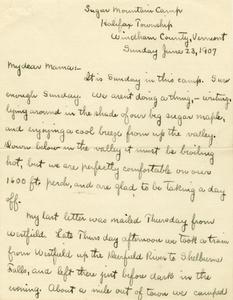 Sugar Mountain Camp
Halifax Township
Windham County, Vermont
Sunday June 23, 1907
My dear Mama:-
It is Sunday in this camp. Sure
enough Sunday. We aren't doing a thing, - writing,
lying around in the shade of our big sugar maple,
and enjoying a cool breeze from up the valley.
Down below in the valley it must be broiling
hot, but we are perfectly comfortable on our
1600 ft. perch, and are glad to be taking a day
off.
My last letter was mailed Thursday from
Westfield. Late Thursday afternoon we took a train
from Westfield up the Deerfield River to Shelburne
Falls, and left there just before dark in the
evening. About a mile out of town we camped